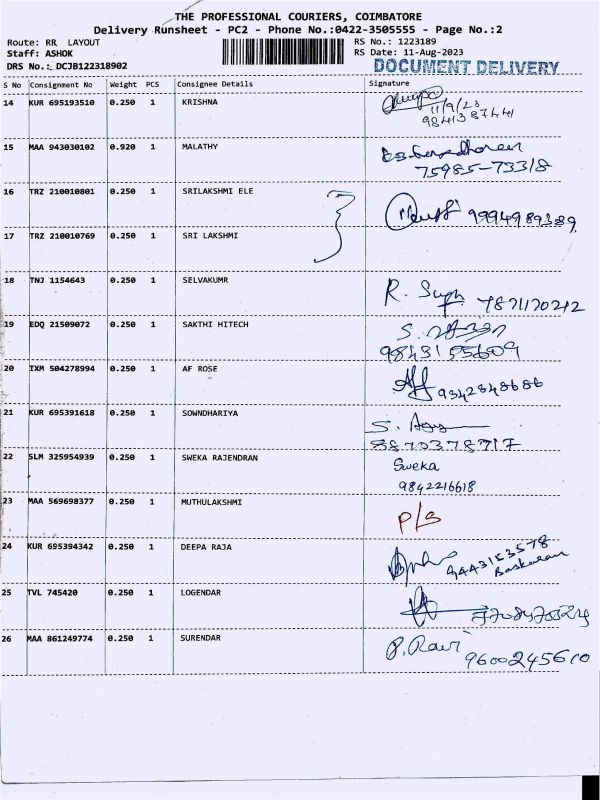 THE PROFESSIONAL COURIERS, COIMBATORE
Delivery Runsheet - PC2 - Phone No.:0422-3505555 - Page No.:2
Route: RR LAYOUT
Staff: ASHOK
DRS No.: DCJB122318902
RS No.: 1223189
RS Date: 11-Aug-2023
DOCUMENT DELIVERY
S No Consignment No Weight PCS Consignee Details Signature
14 KUR 695193510 0.250 1 KRISHNA
11/9/23
15 MAA 943030102 0.920 1 MALATHY
75985-73318
16 TRZ 210010801 0.250 1 SRILAKSHMI ELE
9994989389
17 TRZ 210010769 0.250 1 SRI LAKSHMI
18 TNJ 1154643 0.250 1 SELVAKUMR
7871170212
19 EDQ 21509072 0.250 1 SAKTHI HITECH
9843155609
20 IXM 504278994 0.250 1 AF ROSE
9342848686
21 KUR 695391618 0.250 1 SOWNDHARIYA
22 SLM 325954939 0.250 1 SWEKA RAJENDRAN Sweka
9842216618
23 MAA 569698377 0.250 1 MUTHULAKSHMI
24 KUR 695394342 0.250 1 DEEPA RAJA
9443153578
Baskaran
25 TVL 745420 0.250 1 LOGENDAR
26 MAA 861249774 0.250 1 SURENDAR P. Ravi
9600245610